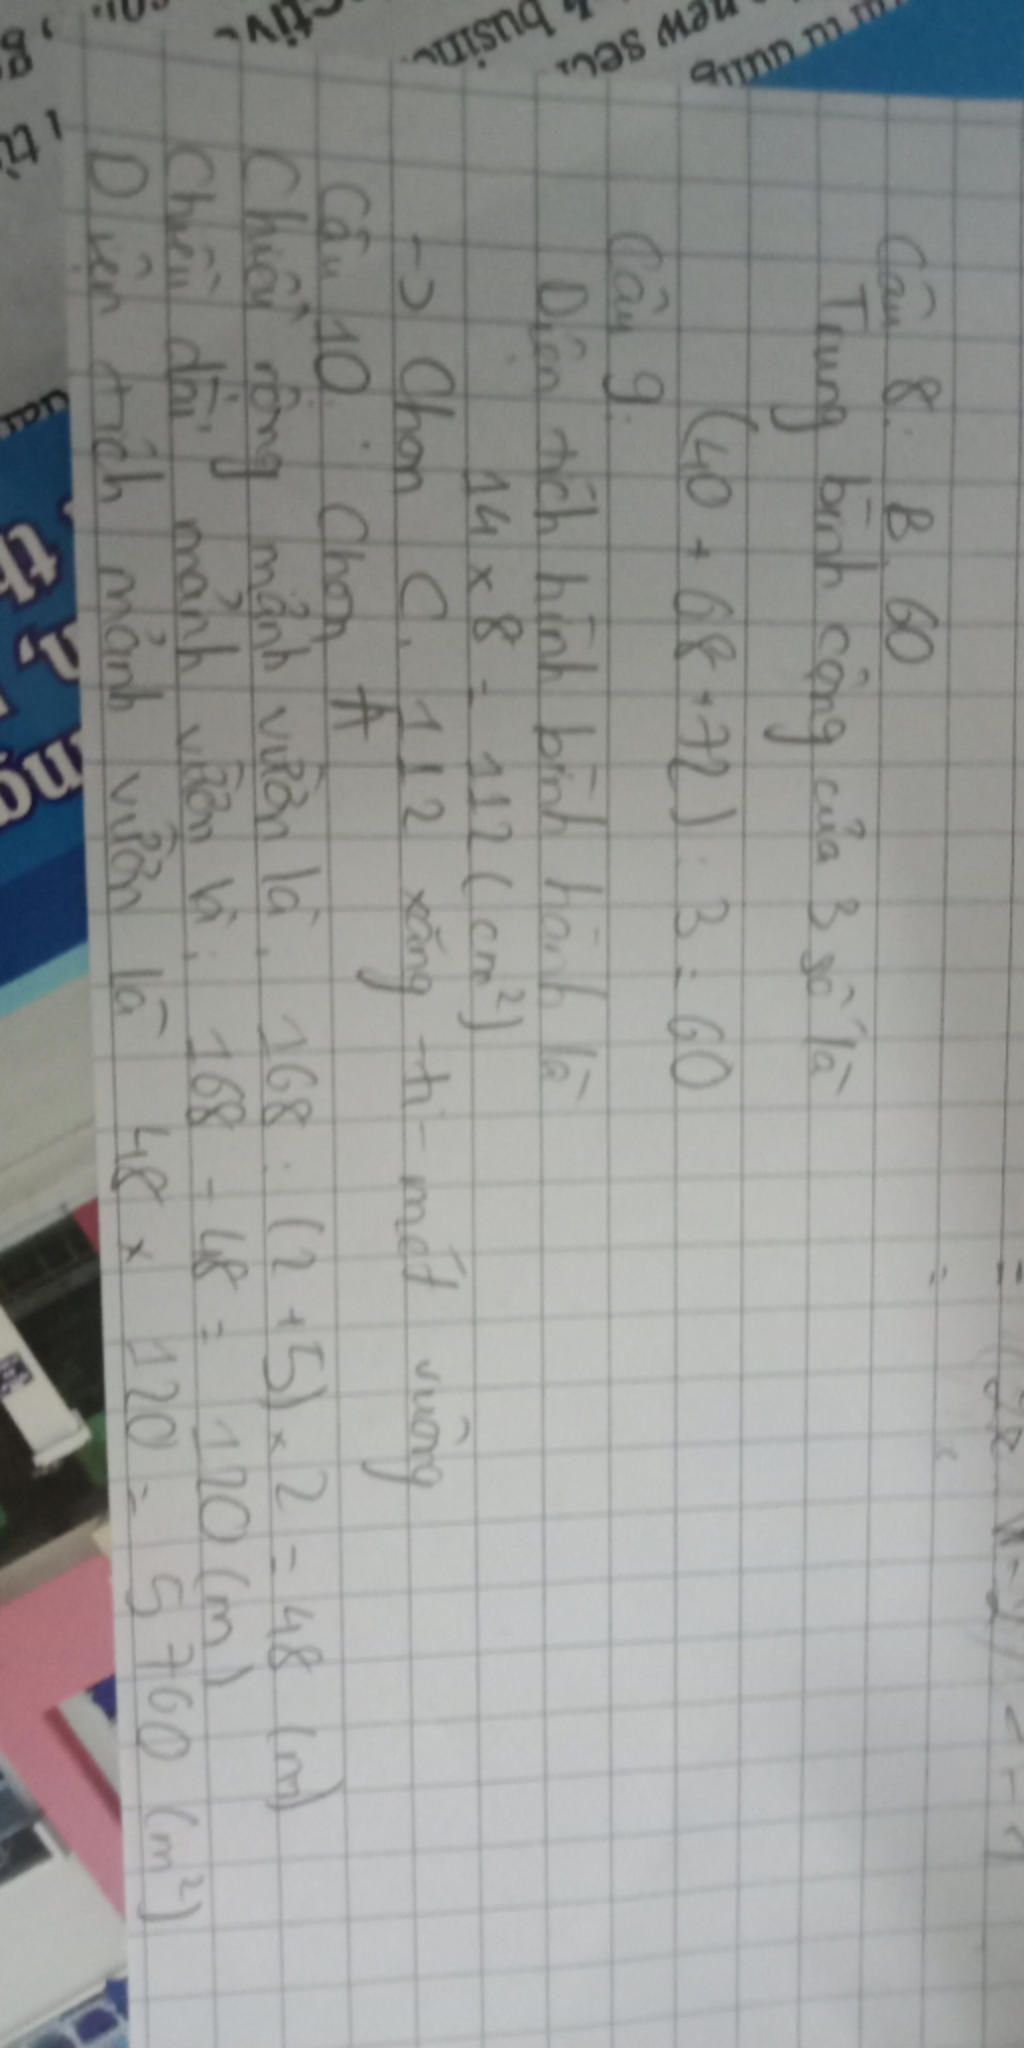 Câu 8: B. 60
Trung bình cộng của 3 số là
(40 + 68 + 72) : 3 = 60
Câu 9:
Diện tích hình bình hành là
14 x 8 = 112 (cm²)
-> Chọn C. 112 xăng-ti-mét vuông
Câu 10: Chọn A
Chiều rộng mảnh vườn là: 168 : (2 + 5) x 2 = 48 (m)
Chiều dài mảnh vườn là: 168 - 48 = 120 (m)
Diện tích mảnh vườn là 48 x 120 = 5 760 (m²)
new
busin